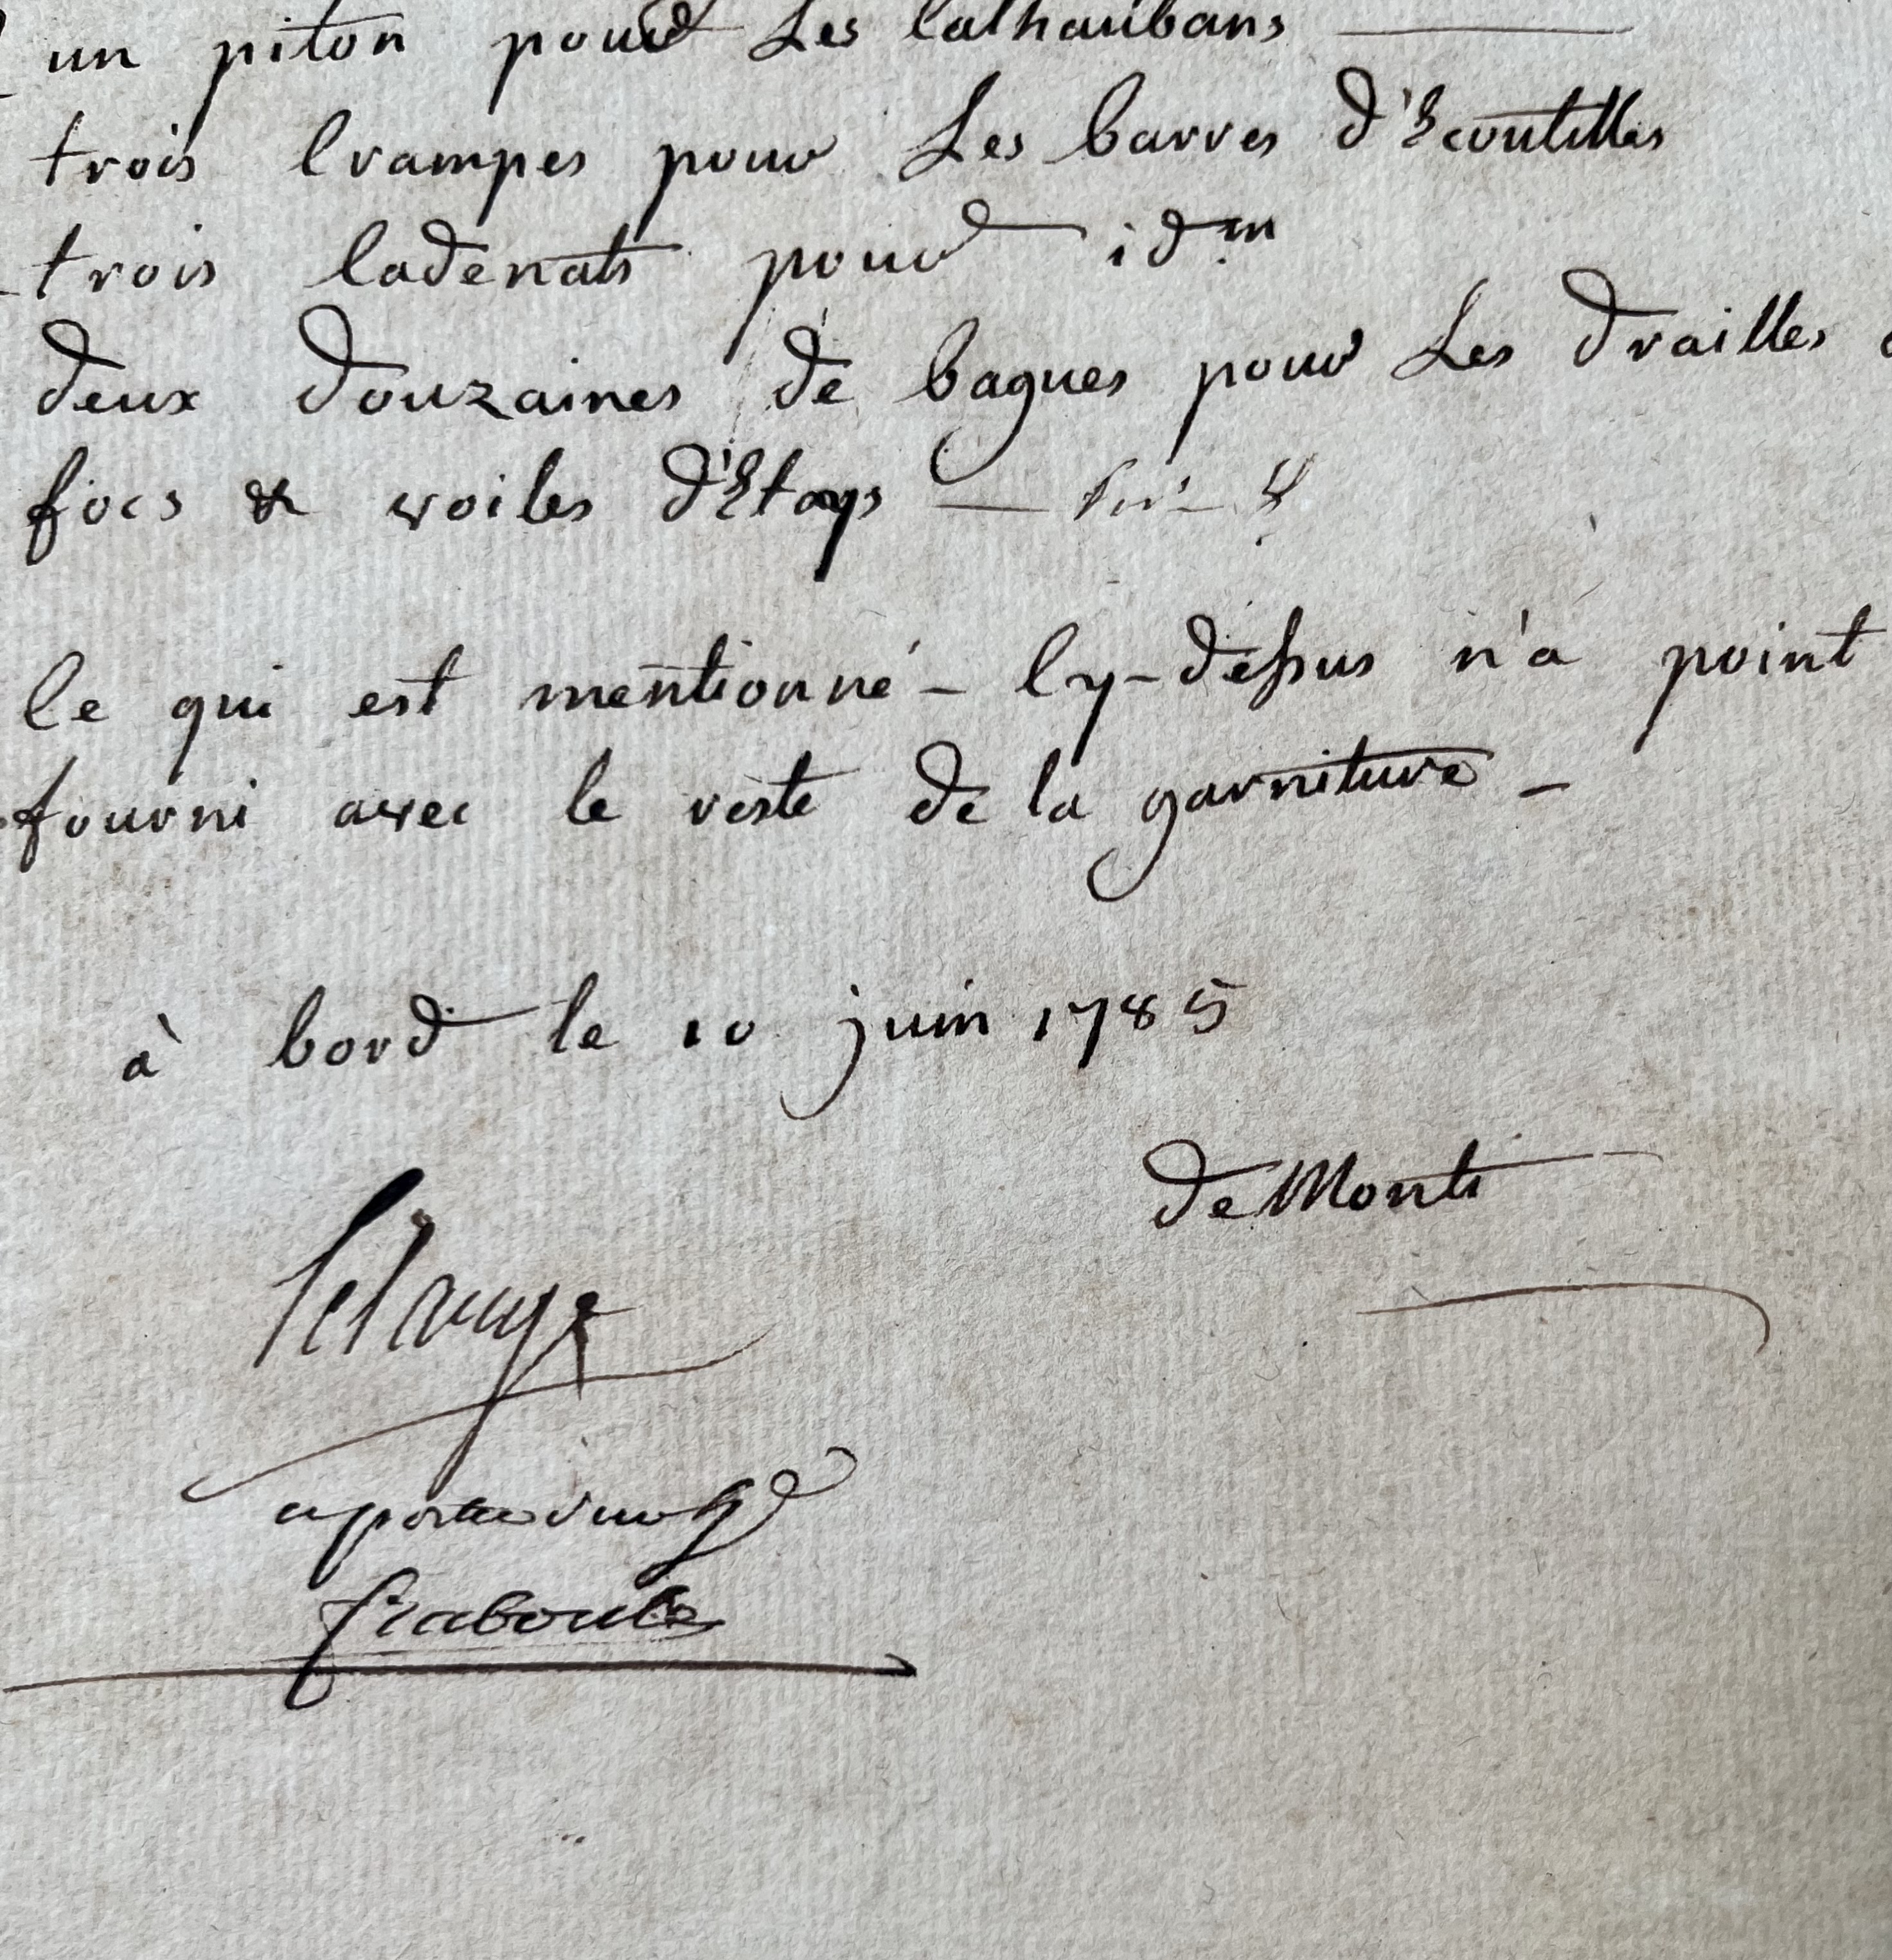 un piton pour Les Calhaubans
trois Crampes pour Les barres d'Ecoutilles
trois Cadenats pour id.m
deux douzaines de bagues pour Les drailles
focs & voiles d'Etays —
Ce qui est mentionné - Cy-dessus n'a point
fourni avec le reste de la garniture -
à bord le 10 juin 1785
de Monti